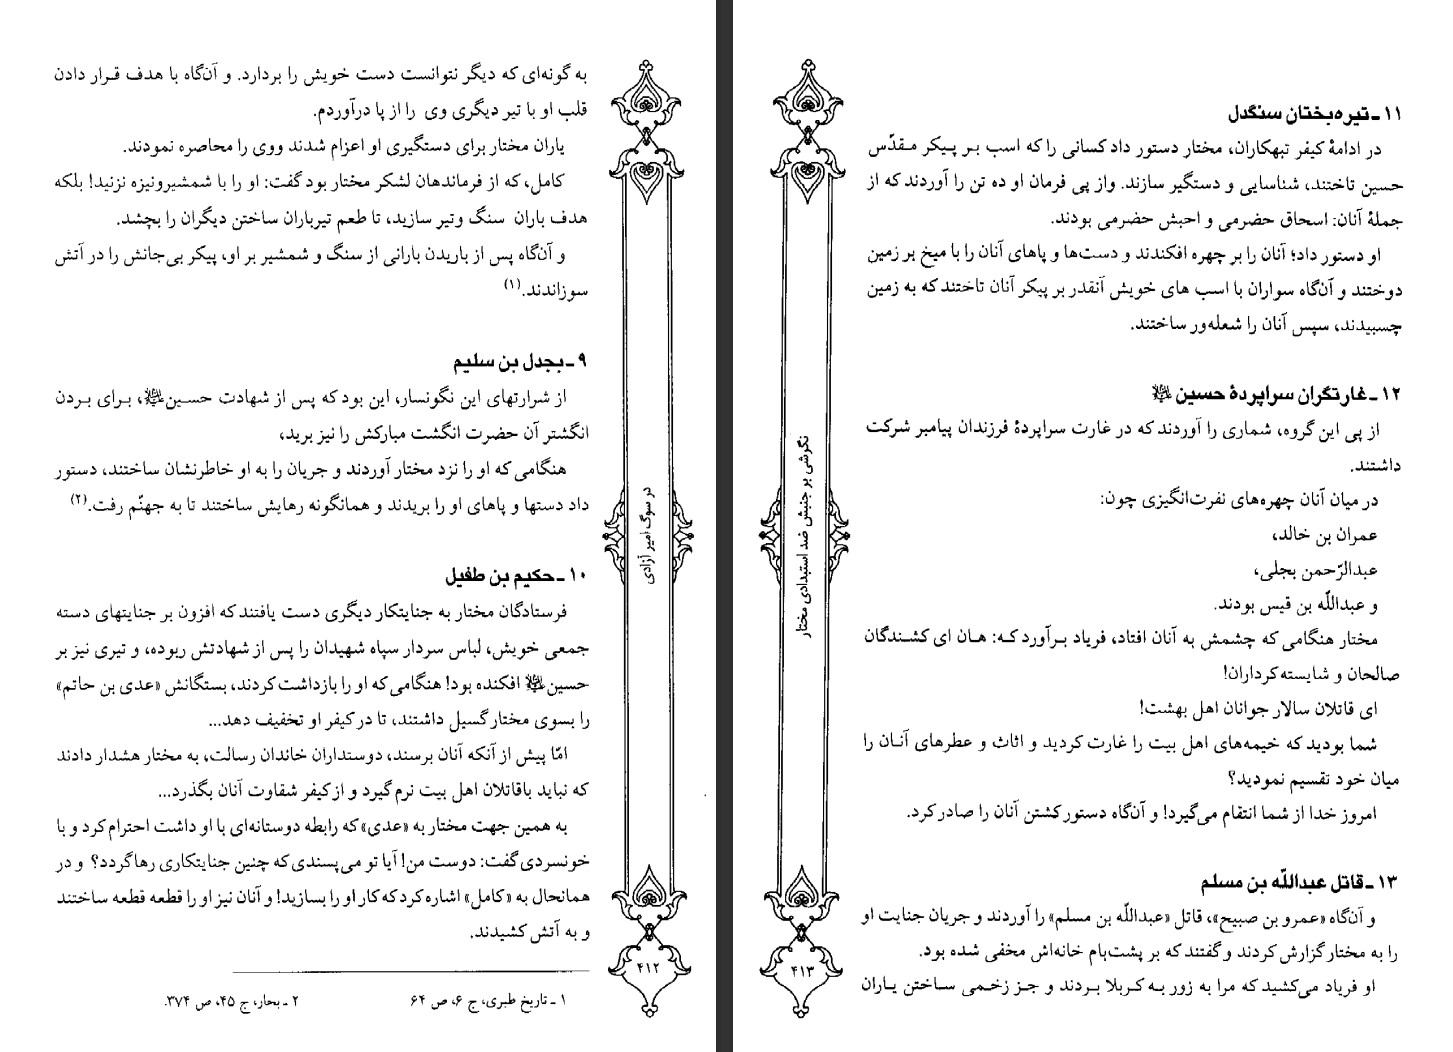 به گونه‌ای که دیگر نتوانست دست خویش را بردارد. و آن‌گاه با هدف قرار دادن
قلب او با تیر دیگری وی را از پا درآوردم.
یاران مختار برای دستگیری او اعزام شدند ووی را محاصره نمودند.
کامل، که از فرماندهان لشکر مختار بود گفت: او را با شمشیرونیزه نزنید! بلکه
هدف باران سنگ وتیر سازید، تا طعم تیرباران ساختن دیگران را بچشد.
و آن‌گاه پس از باریدن بارانی از سنگ و شمشیر بر او، پیکر بی‌جانش را در آتش
سوزاندند.(۱)
۹ ـ بجدل بن سلیم
از شرارتهای این نگونسار، این بود که پس از شهادت حسین، برای بردن
انگشتر آن حضرت انگشت مبارکش را نیز برید،
هنگامی که او را نزد مختار آوردند و جریان را به او خاطرنشان ساختند، دستور
داد دستها و پاهای او را بریدند و همانگونه رهایش ساختند تا به جهنّم رفت.(۲)
۱۰ ـ حکیم بن طفیل
فرستادگان مختار به جنایتکار دیگری دست یافتند که افزون بر جنایتهای دسته
جمعی خویش، لباس سردار سپاه شهیدان را پس از شهادتش ربوده، و تیری نیز بر
حسین افکنده بود! هنگامی که او را بازداشت کردند، بستگانش «عدی بن حاتم»
را بسوی مختار گسیل داشتند، تا در کیفر او تخفیف دهد...
امّا پیش از آنکه آنان برسند، دوستداران خاندان رسالت، به مختار هشدار دادند
که نباید باقاتلان اهل بیت نرم گیرد و از کیفر شقاوت آنان بگذرد...
به همین جهت مختار به «عدی» که رابطه دوستانه‌ای با او داشت احترام کرد و با
خونسردی گفت: دوست من! آیا تو می‌پسندی که چنین جنایتکاری رها گردد؟ و در
همانحال به «کامل» اشاره کرد که کار او را بسازید! و آنان نیز او را قطعه قطعه ساختند
و به آتش کشیدند.
۱ ـ تاریخ طبری، ج ۶، ص ۶۴
۲ ـ بحار، ج ۴۵، ص ۳۷۴.
در سوگ امیر آزادی
۴۱۲
۱۱ ـ تیره‌بختان سنگدل
در ادامهٔ کیفر تبهکاران، مختار دستور داد کسانی را که اسب بر پیکر مقدّس
حسین تاختند، شناسایی و دستگیر سازند. واز پی فرمان او ده تن را آوردند که از
جملهٔ آنان: اسحاق حضرمی و احبش حضرمی بودند.
او دستور داد؛ آنان را بر چهره افکندند و دست‌ها و پاهای آنان را با میخ بر زمین
دوختند و آن‌گاه سواران با اسب های خویش آنقدر بر پیکر آنان تاختند که به زمین
چسبیدند، سپس آنان را شعله‌ور ساختند.
۱۲ ـ غارتگران سراپردهٔ حسین
از پی این گروه، شماری را آوردند که در غارت سراپردهٔ فرزندان پیامبر شرکت
داشتند.
در میان آنان چهره‌های نفرت‌انگیزی چون:
عمران بن خالد،
عبدالرّحمن بجلی،
و عبداللّه بن قیس بودند.
مختار هنگامی که چشمش به آنان افتاد، فریاد برآورد که: هان ای کشندگان
صالحان و شایسته‌کرداران!
ای قاتلان سالار جوانان اهل بهشت!
شما بودید که خیمه‌های اهل بیت را غارت کردید و اثاث و عطرهای آنان را
میان خود تقسیم نمودید؟
امروز خدا از شما انتقام می‌گیرد! و آن‌گاه دستور کشتن آنان را صادر کرد.
۱۳ ـ قاتل عبداللّه بن مسلم
و آن‌گاه «عمرو بن صبیح»، قاتل «عبداللّه بن مسلم» را آوردند و جریان جنایت او
را به مختار گزارش کردند و گفتند که بر پشت‌بام خانه‌اش مخفی شده بود.
او فریاد می‌کشید که مرا به زور به کربلا بردند و جز زخمی ساختن یاران
نگرشی بر جنبش ضد استبدادی مختار
۴۱۳